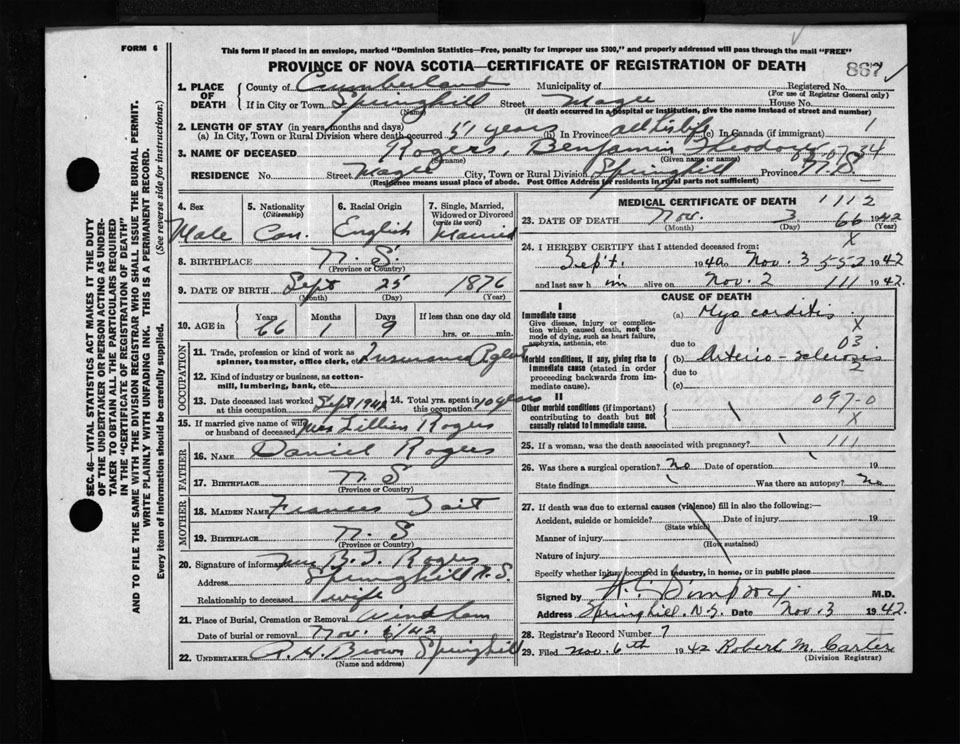 FORM 6
This form if placed in an envelope, marked "Dominion Statistics—Free, penalty for improper use $300," and properly addressed will pass through the mail "FREE"
PROVINCE OF NOVA SCOTIA—CERTIFICATE OF REGISTRATION OF DEATH
867
1. PLACE OF DEATH
County of Cumberland Municipality of Registered No.
(For use of Registrar General only)
If in City or Town Springhill Street Magee House No.
(Name) (If death occurred in a hospital or institution, give the name instead of street and number)
2. LENGTH OF STAY (in years, months and days)
(a) In City, Town or Rural Division where death occurred 51 years (b) In Province all his life (c) In Canada (if immigrant) 1
3. NAME OF DECEASED Rogers, Benjamin Theodore
(Surname) (Given name or names)
RESIDENCE No. Street Magee City, Town or Rural Division Springhill Province N.S.
(Residence means usual place of abode. Post Office Address for residents in rural parts not sufficient)
4. Sex Male
5. Nationality (Citizenship) Can.
6. Racial Origin English
7. Single, Married, Widowed or Divorced (write the word) Married
8. BIRTHPLACE N.S.
(Province or Country)
9. DATE OF BIRTH Sept 25 1876
(Month) (Day) (Year)
10. AGE in Years 66 Months 1 Days 9 If less than one day old hrs. or min.
OCCUPATION
11. Trade, profession or kind of work as spinner, teamster, office clerk, etc. Insurance Agent
12. Kind of industry or business, as cotton-mill, lumbering, bank, etc.
13. Date deceased last worked at this occupation Sept 1942
14. Total yrs. spent in this occupation 10 years
15. If married give name of wife or husband of deceased Mrs Lillian Rogers
FATHER
16. NAME Daniel Rogers
17. BIRTHPLACE N.S
(Province or Country)
MOTHER
18. MAIDEN NAME Frances Tait
19. BIRTHPLACE N.S
(Province or Country)
20. Signature of informant Mrs B.T. Rogers
Address Springhill N.S.
Relationship to deceased wife
21. Place of Burial, Cremation or Removal Windham
Date of burial or removal Nov. 6/42
22. UNDERTAKER A.H. Brown Springhill
(Name and address)
MEDICAL CERTIFICATE OF DEATH 1112
23. DATE OF DEATH Nov. 3 66 1942
(Month) (Day) (Year)
X
24. I HEREBY CERTIFY that I attended deceased from:
Sept. 1940 to Nov. 3 552 1942
and last saw him alive on Nov. 2 111 1942.
CAUSE OF DEATH
I
Immediate cause
Give disease, injury or complication which caused death, not the mode of dying, such as heart failure, asphyxia, asthenia, etc.
(a) Myocarditis
X
due to 03
Morbid conditions, if any, giving rise to immediate cause (stated in order proceeding backwards from immediate cause).
(b) Arterio-sclerosis
due to 2
(c)
II
Other morbid conditions (if important) contributing to death but not causally related to immediate cause.
097-0
X
25. If a woman, was the death associated with pregnancy? 111
26. Was there a surgical operation? no Date of operation 19
State findings Was there an autopsy? no
27. If death was due to external causes (violence) fill in also the following:—
Accident, suicide or homicide? Date of injury 19
(State which)
Manner of injury
(How sustained)
Nature of injury
Specify whether injury occurred in industry, in home, or in public place
Signed by Simpson M.D.
Address Springhill. N.S. Date Nov 3 1942.
28. Registrar's Record Number 7
29. Filed Nov. 6th 1942 Robert M. Carter
(Division Registrar)
SEC. 46—VITAL STATISTICS ACT MAKES IT THE DUTY
OF THE UNDERTAKER OR PERSON ACTING AS UNDER-
TAKER TO OBTAIN ALL THE PARTICULARS REQUIRED
IN THE "CERTIFICATE OF REGISTRATION OF DEATH" AND
TO FILE THE SAME WITH THE DIVISION REGISTRAR WHO SHALL ISSUE THE BURIAL PERMIT.
WRITE PLAINLY WITH UNFADING INK. THIS IS A PERMANENT RECORD.
Every item of information should be carefully supplied. (See reverse side for instructions.)